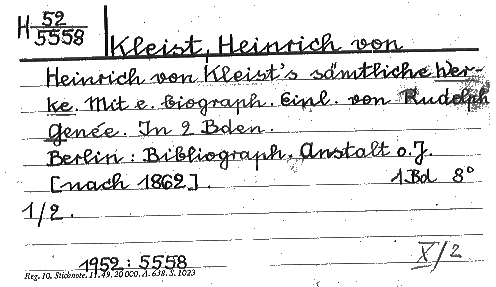 H 52/5558
Kleist, Heinrich von
Heinrich von Kleist's sämtliche Wer-
ke. Mit e. biograph. Einl. von Rudolph
Genée. In 2 Bden.
Berlin: Bibliograph. Anstalt o.J.
[nach 1862]. 1 Bd 8°
1/2.
X/2
1952: 5558
Reg. 10. Sticknote. 11. 49. 20 000. A. 638. S. 1023